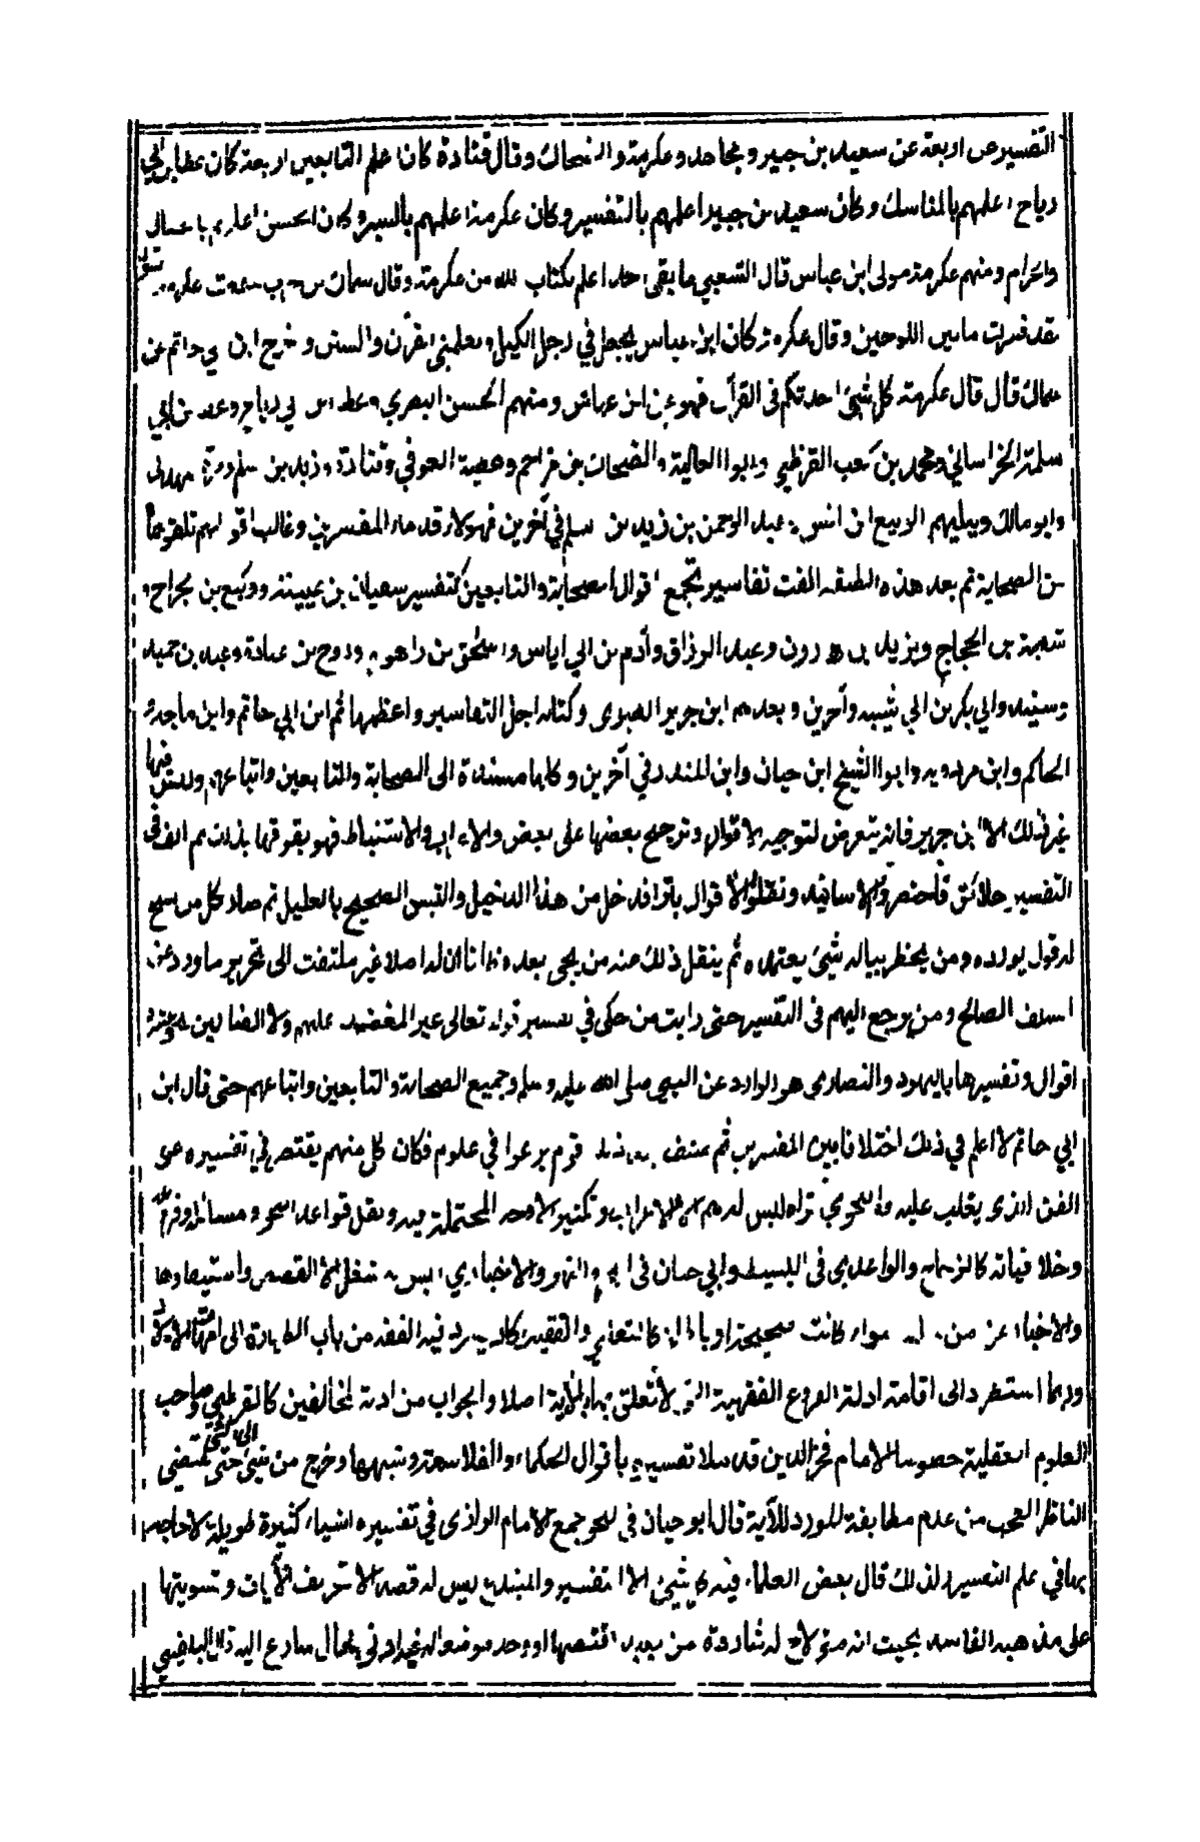 التفسير عن اربعة عن سعيد بن جبير ومجاهد وعكرمة والضحاك وقال قتادة كان اعلم التابعين اربعة كان عطا بن ابي
رباح اعلمهم بالمناسك وكان سعيد بن جبير اعلمهم بالتفسير وكان عكرمة اعلمهم بالسير وكان الحسن اعلمهم بالحلال
والحرام ومنهم عكرمة مولى ابن عباس قال الشعبي ما بقى احد اعلم بكتاب الله من عكرمة وقال سماك بن حرب سمعت عكرمة يقول
لقد فسرت ما بين اللوحين وقال عكرمة كان ابن عباس يجعل في رجل الكبل ويعلمني القرآن والسنن واخرج ابن ابي حاتم عن
سماك قال قال عكرمة كل شيئ احدثكم في القرآن فهو عن ابن عباس ومنهم الحسن البصري وعطا بن ابي رباح وعطا بن ابي
سلمة الخراساني ومحمد بن كعب القرظي وابوا العالية والضحاك بن مزاحم وعطية العوفي وقتادة وزيد بن اسلم ومرة الهمداني
وابو مالك ويليهم الربيع ابن انس وعبد الرحمن بن زيد بن اسلم في آخرين فهولاء قدماء المفسرين وغالب اقوالهم تلقوها
من الصحابة ثم بعد هذه الطبقة الفت تفاسير تجمع اقوال الصحابة والتابعين كتفسير سفيان بن عيينة ووكيع بن الجراح و
شعبة بن الحجاج ويزيد بن هارون وعبد الرزاق وآدم بن ابي اياس واسحق بن راهويه وروح بن عبادة وعبد بن حميد
وسنيد وابي بكر بن ابي شيبه وآخرين وبعدهم ابن جرير الطبرى وكتابه اجل التفاسير واعظمها ثم ابن ابي حاتم وابن ماجه و
الحاكم وابن مردويه وابوا الشيخ ابن حبان وابن المنذر في آخرين وكلها مسندة الى الصحابة والتابعين واتباعهم وليس فيها
غير ذلك الا ابن جرير فانه يتعرض لتوجيه الاقوال وترجيح بعضها على بعض والاعراب والاستنباط فهو يفوقها بذلك ثم الف في
التفسير خلائق فاختصروا الاسانيد ونقلوا الاقوال بترا فدخل من هذا الدخيل والتبس الصحيح بالعليل ثم صار كل من سنح
له قول يورده ومن يخطر بباله شيئ يعتمده ثم ينقل ذلك عنه من يجى بعده ظانا ان له اصلا غير ملتفت الى تحرير ما ورد عن
السلف الصالح ومن يرجع اليهم في التفسير حتى رايت من حكى في تفسير قوله تعالى غير المغضوب عليهم ولا الضالين نحو عشرة
اقوال وتفسيرها باليهود والنصارى هو الوارد عن النبي صلى الله عليه وسلم وجميع الصحابة والتابعين واتباعهم حتى قال ابن
ابي حاتم لا اعلم في ذلك اختلافا بين المفسرين ثم صنف بعد ذلك قوم برعوا في علوم فكان كل منهم يقتصر في تفسيره على
الفن الذى يغلب عليه فالنحوي تراه ليس له هم الا الاعراب وتكثير الاوجه المحتملة فيه ونقل قواعد النحو ومسائله وفروعه
وخلافياته كالزجاج والواحدي في البسيط وابي حيان في البحر والنهر والاخباري ليس له شغل الا القصص واستيفاوها
والاخبار عن من سلف سواء كانت صحيحة او باطلة كالثعلبي والفقيه يكاد يسرد فيه الفقه من باب الطهارة الى امهات الاولاد
وربما استطرد الى اقامة ادلة الفروع الفقهية التي لا تعلق لها بالآية اصلا والجواب من ادلة المخالفين كالقرطبي وصاحب
العلوم العقلية خصوصا الامام فخر الدين قد ملا تفسيره باقوال الحكماء والفلاسفة وشبهها وخرج من شيئ الى شيئ حتى يقضى
الناظر العجب من عدم مطابقة المورد للآية قال ابو حيان في البحر جمع الامام الرازى في تفسيره اشياء كثيرة طويلة لا حاجة
بها في علم التفسير ولذلك قال بعض العلماء فيه كل شيئ الا التفسير والمبتدع ليس له قصد الا تحريف الآيات وتسويتها
على مذهبه الفاسد بحيث انه متى لاح له شاردة من بعيد اقتنصها او وجد موضعا له فيه ادنى مجال سارع اليه قال البلقيني